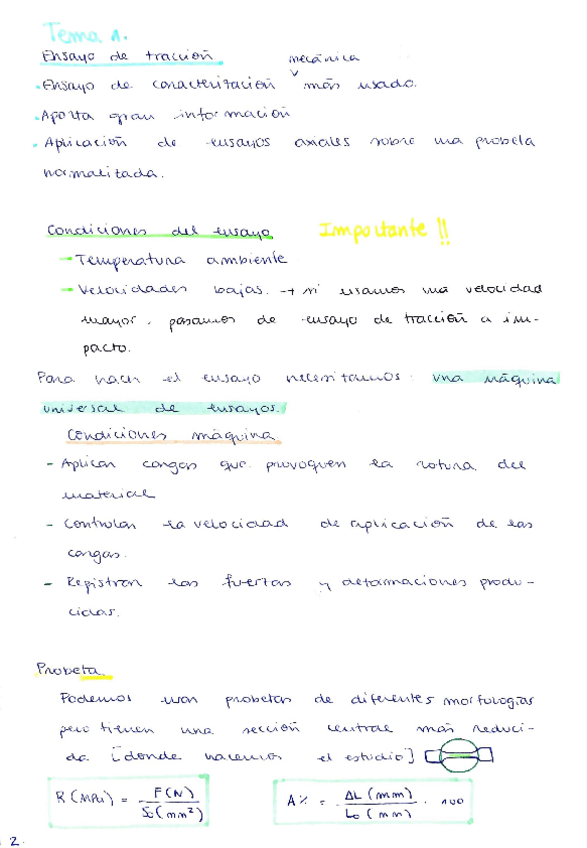 Tema 1.
Ensayo de tracción
mecánica
· Ensayo de caracterización más usado.
· Aporta gran información
· Aplicación de ensayos axiales sobre una probeta
normalizada.
Condiciones del ensayo Importante!!
→ Temperatura ambiente
→ Velocidades bajas. → si usamos una velocidad
mayor, pasamos de ensayo de tracción a im-
pacto.
Para hacer el ensayo necesitamos: una máquina
universal de ensayos.
Condiciones máquina
- Aplican cargas que provoquen la rotura del
material
- Controlan la velocidad de aplicación de las
cargas.
- Registran las fuerzas y deformaciones produ-
cidas.
Probeta.
Podemos usar probetas de diferentes morfologías
pero tienen una sección central más reduci-
da [donde hacemos el estudio]
R (MPa) = F(N) / S₀(mm²)
A% = ΔL (mm) / L₀ (mm) · 100
2